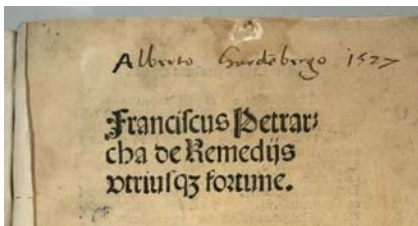 Alberto Hardēbergo 1527
Franciscus Petrar⸗
cha de Remedijs
vtriusqȝ fortune.